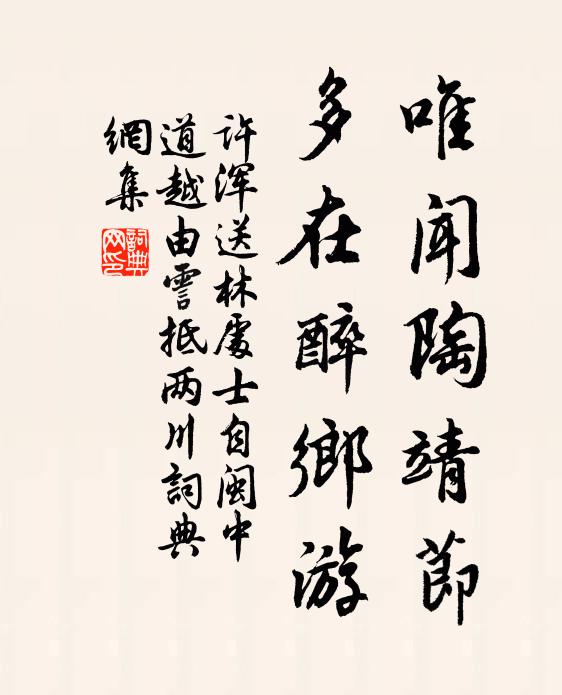 唯聞陶靖節
多在醉鄉游
許渾送林處士自閩中
道越由霅抵两川詞典
網集
詞典网印